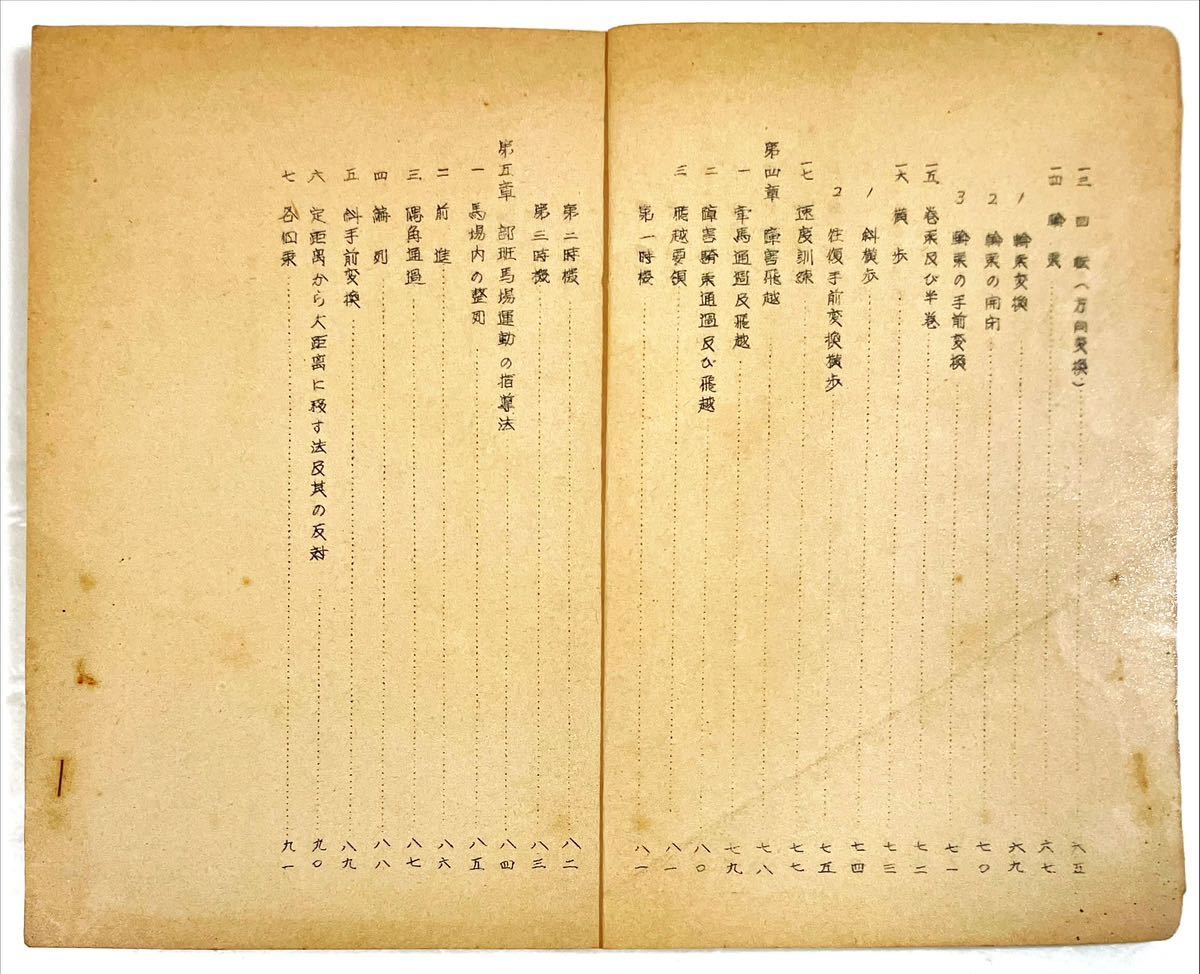 一三 回転(方向変換) 六五
一四 輪乗 六七
1 輪乗変換 六九
2 輪乗の開閉 七〇
3 輪乗の手前変換 七一
一五 巻乗及び半巻 七二
一六 横歩 七三
1 斜横歩 七四
2 往復手前変換横歩 七五
一七 速度訓練 七七
第四章 障害飛越 七八
一 牽馬通過及飛越 七九
二 障害騎乗通過及び飛越 八〇
三 飛越要領 八一
第一時機 八一
第二時機 八二
第三時機 八三
第五章 部班馬場運動の指導法 八四
一 馬場内の整列 八五
二 前進 八六
三 隅角通過 八七
四 列 八八
五 斜手前変換 八九
六 定距离から大距离に移す法及其の反対 九〇
七 各回乗 九一